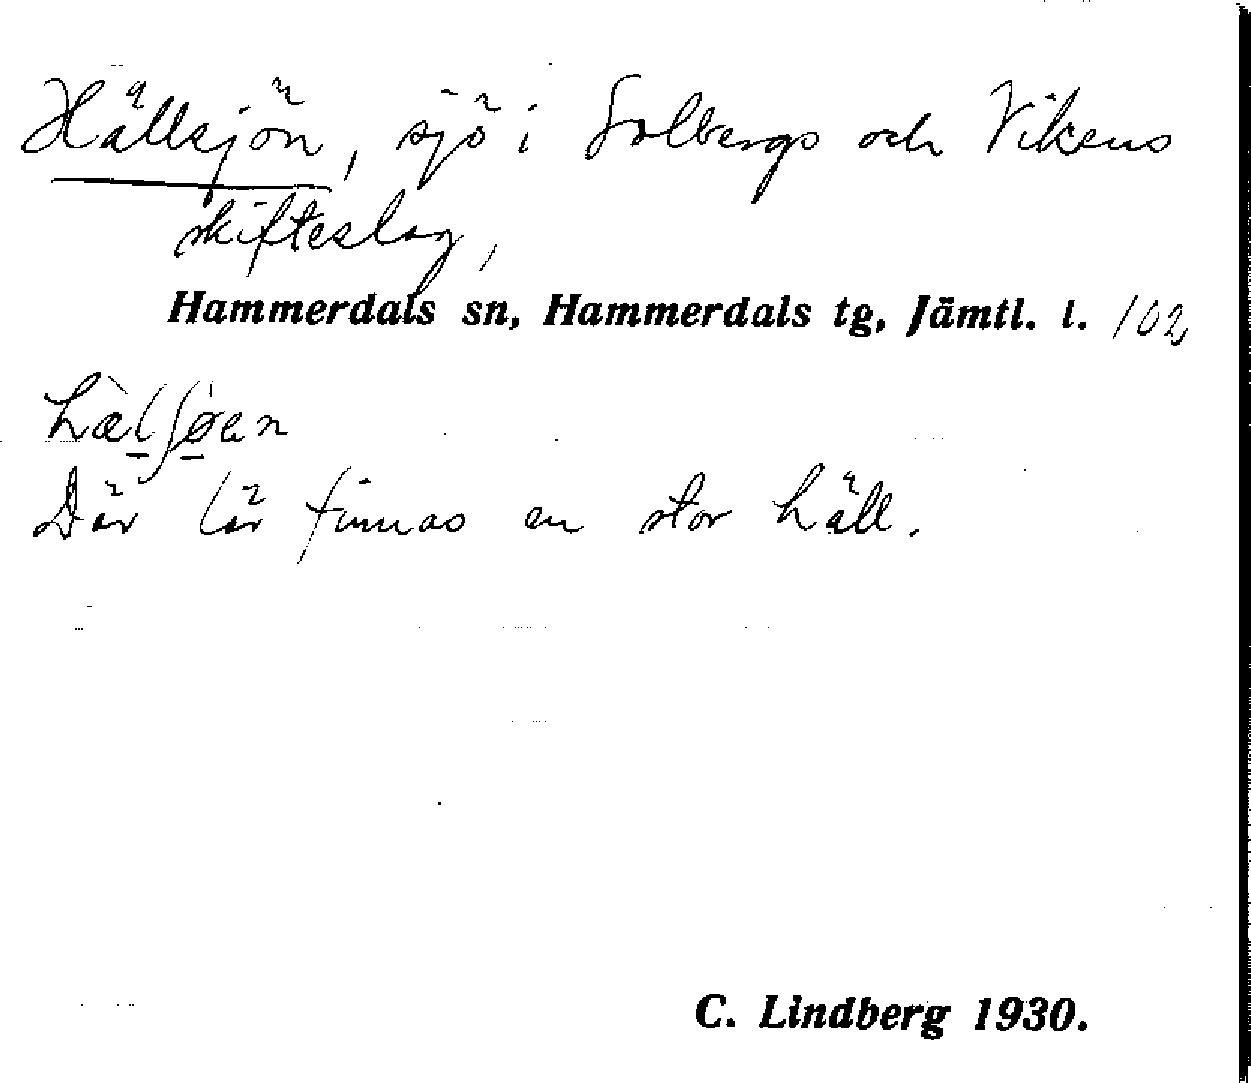 Hällsjön, sjö i Solbergs och Vikens
skifteslag,
Hammerdals sn, Hammerdals tg, Jämtl. l. 102
Där lär finnas en stor häll.
C. Lindberg 1930.